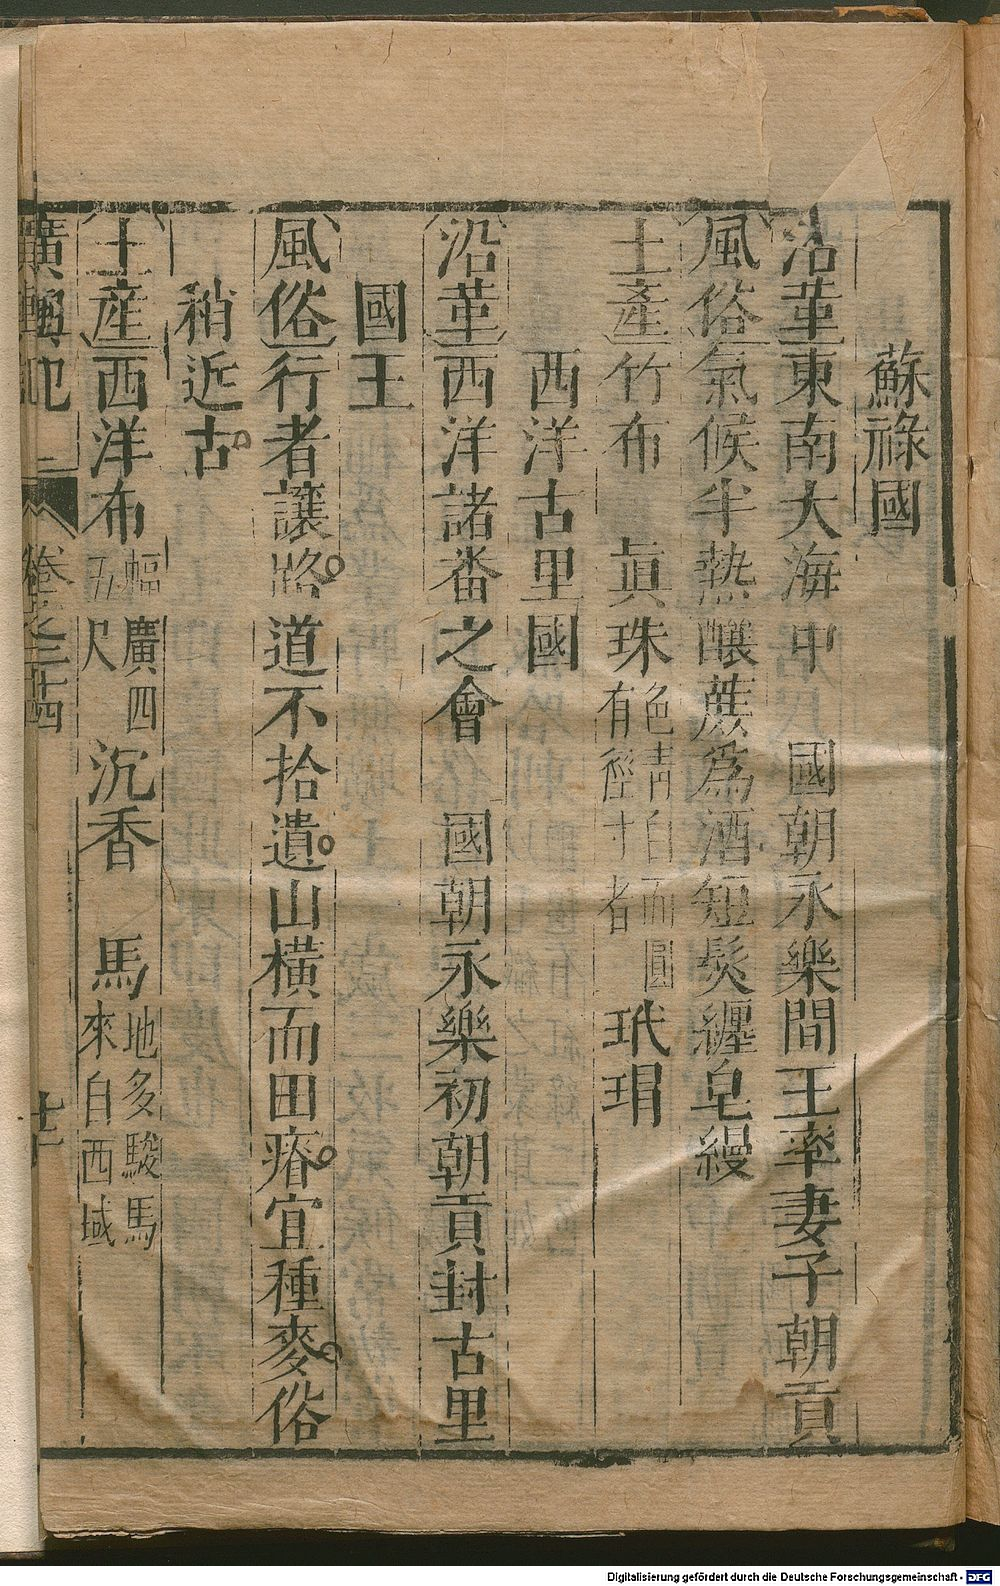 蘇祿國
沿革東南大海中　國朝永樂間王率妻子朝貢
風俗氣候半熱釀蔗為酒短髮纏皂縵
土產竹布　眞珠色青白而圓有徑寸者玳瑁
西洋古里國
沿革西洋諸番之會　國朝永樂初朝貢封古里
國王
風俗行者讓路道不拾遺山橫而田瘠宜種麥俗
稍近古
土産西洋布幅廣四五尺沉香　馬地多駿馬來自西域
廣輿記　卷之二十四　十二
Digitalisierung gefördert durch die Deutsche Forschungsgemeinschaft - DFG